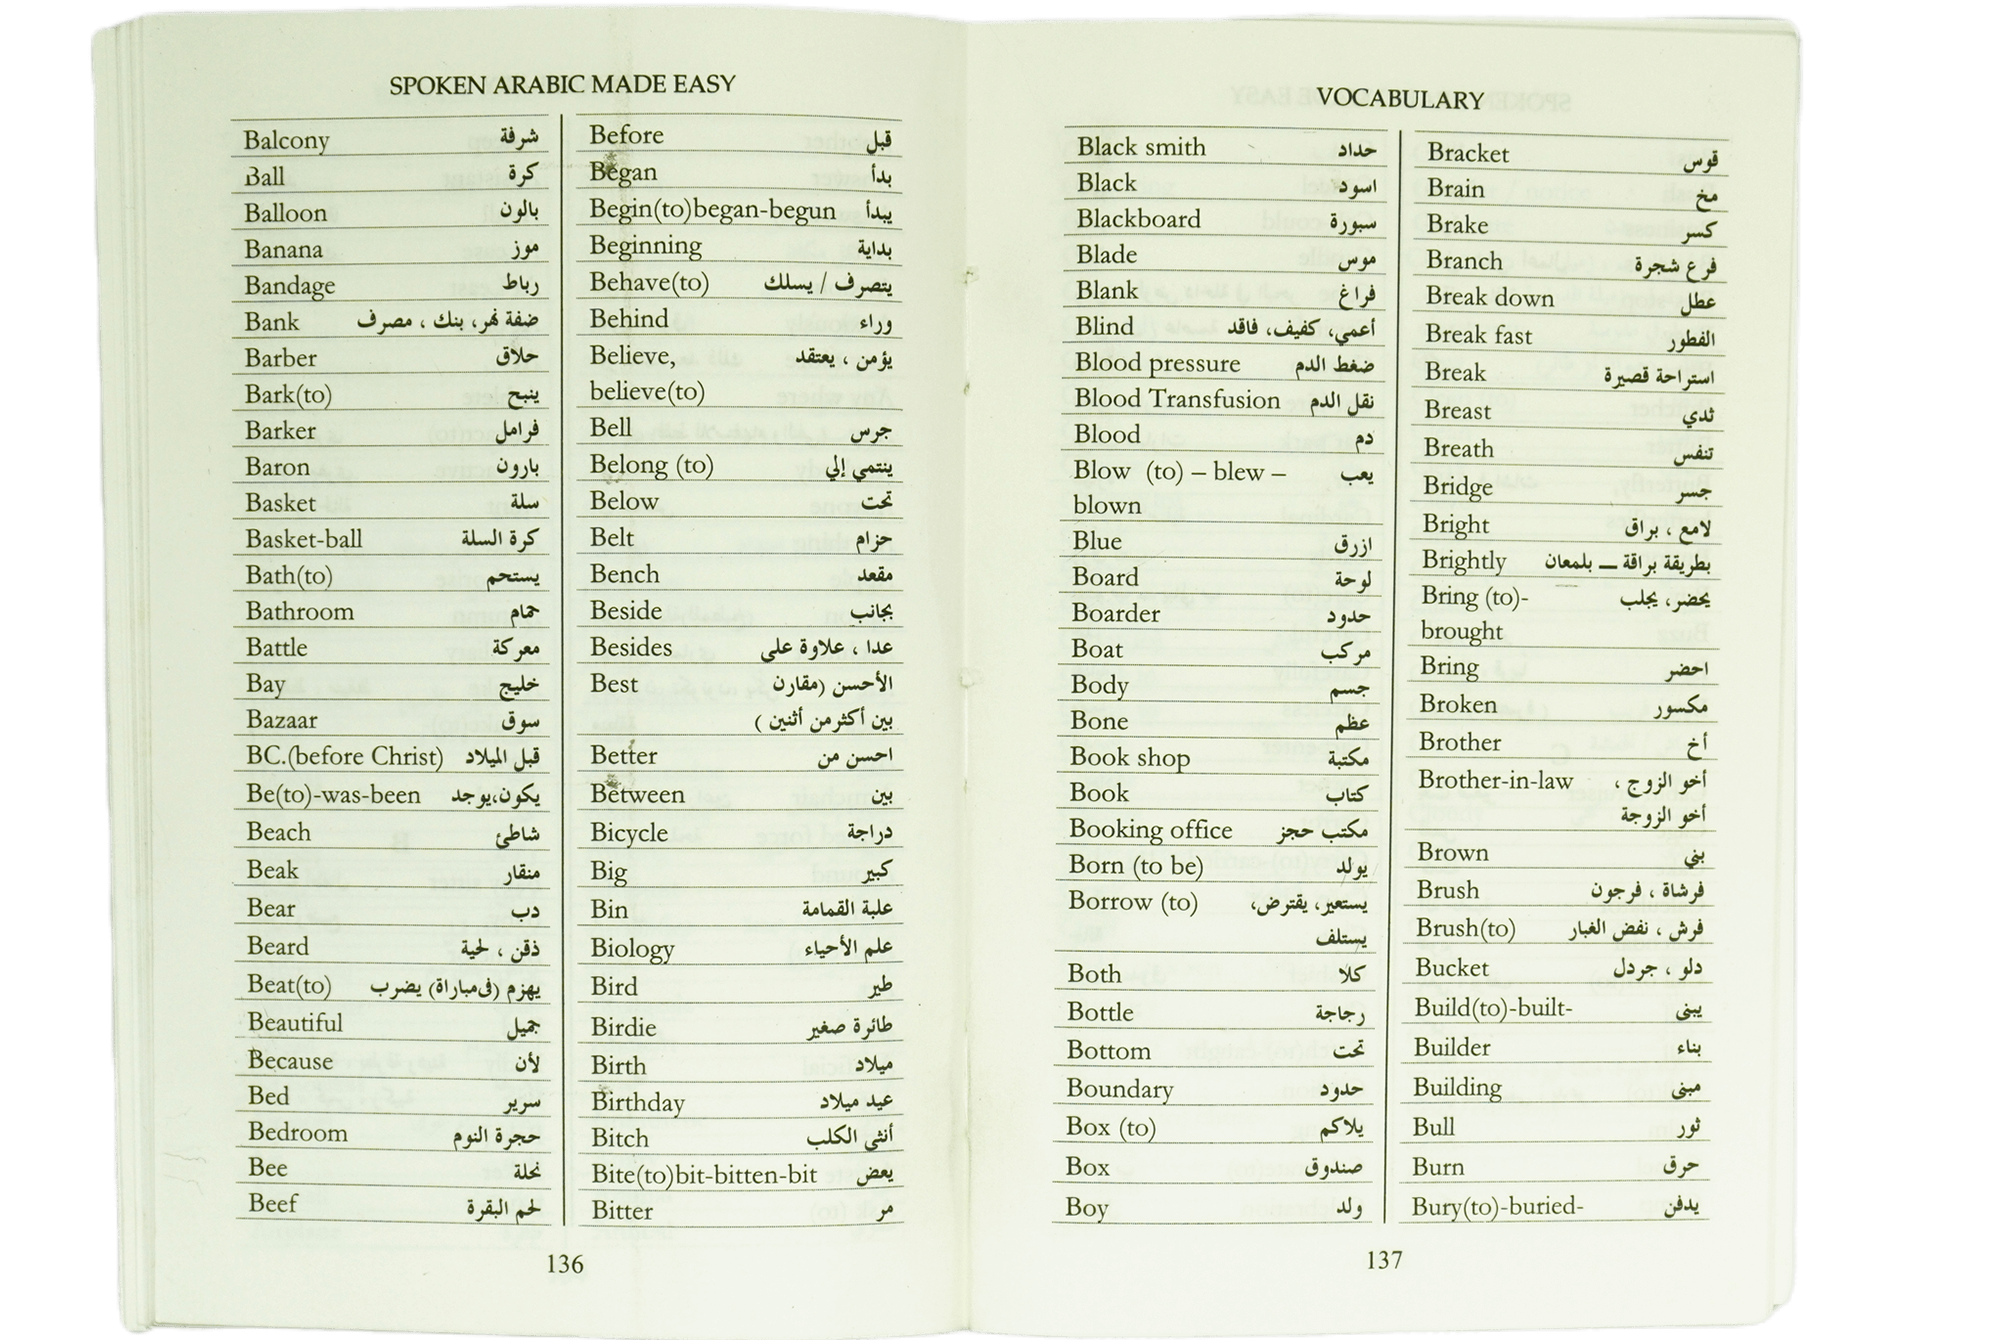 SPOKEN ARABIC MADE EASY
Balcony شرفة
Ball كرة
Balloon بالون
Banana موز
Bandage رباط
Bank ضفة نهر، بنك ، مصرف
Barber حلاق
Bark(to) ينبح
Barker فرامل
Baron بارون
Basket سلة
Basket-ball كرة السلة
Bath(to) يستحم
Bathroom حمام
Battle معركة
Bay خليج
Bazaar سوق
BC.(before Christ) قبل الميلاد
Be(to)-was-been يكون،يوجد
Beach شاطئ
Beak منقار
Bear دب
Beard ذقن ، لحية
Beat(to) يهزم (فى مباراة) يضرب
Beautiful جميل
Because لأن
Bed سرير
Bedroom حجرة النوم
Bee نحلة
Beef لحم البقرة
Before قبل
Began بدأ
Begin(to)began-begun يبدأ
Beginning بداية
Behave(to) يتصرف / يسلك
Behind وراء
Believe, يؤمن ، يعتقد
believe(to)
Bell جرس
Belong (to) ينتمي إلي
Below تحت
Belt حزام
Bench مقعد
Beside بجانب
Besides عدا ، علاوة على
Best الأحسن (مقارن
بين أكثرمن أثنين )
Better احسن من
Between بين
Bicycle دراجة
Big كبير
Bin علبة القمامة
Biology علم الأحياء
Bird طير
Birdie طائرة صغير
Birth ميلاد
Birthday عيد ميلاد
Bitch أنثى الكلب
Bite(to)bit-bitten-bit يعض
Bitter مر
136
VOCABULARY
Black smith حداد
Black اسود
Blackboard سبورة
Blade موس
Blank فراغ
Blind أعمي، كفيف، فاقد
Blood pressure ضغط الدم
Blood Transfusion نقل الدم
Blood دم
Blow (to) – blew – يعب
blown
Blue ازرق
Board لوحة
Boarder حدود
Boat مركب
Body جسم
Bone عظم
Book shop مكتبة
Book كتاب
Booking office مكتب حجز
Born (to be) يولد
Borrow (to) يستعير، يقترض،
يستلف
Both كلا
Bottle رجاجة
Bottom تحت
Boundary حدود
Box (to) يلاكم
Box صندوق
Boy ولد
Bracket قوس
Brain مخ
Brake كسر
Branch فرع شجرة
Break down عطل
Break fast الفطور
Break استراحة قصيرة
Breast ثدي
Breath تنفس
Bridge جسر
Bright لامع ، براق
Brightly بطريقة براقة ـــ بلمعان
Bring (to)- يحضر، يجلب
brought
Bring احضر
Broken مكسور
Brother أخ
Brother-in-law أخو الزوج ،
أخو الزوجة
Brown بني
Brush فرشاة ، فرجون
Brush(to) فرش ، نفض الغبار
Bucket دلو ، جردل
Build(to)-built- يبنى
Builder بناء
Building مبنى
Bull ثور
Burn حرق
Bury(to)-buried- يدفن
137